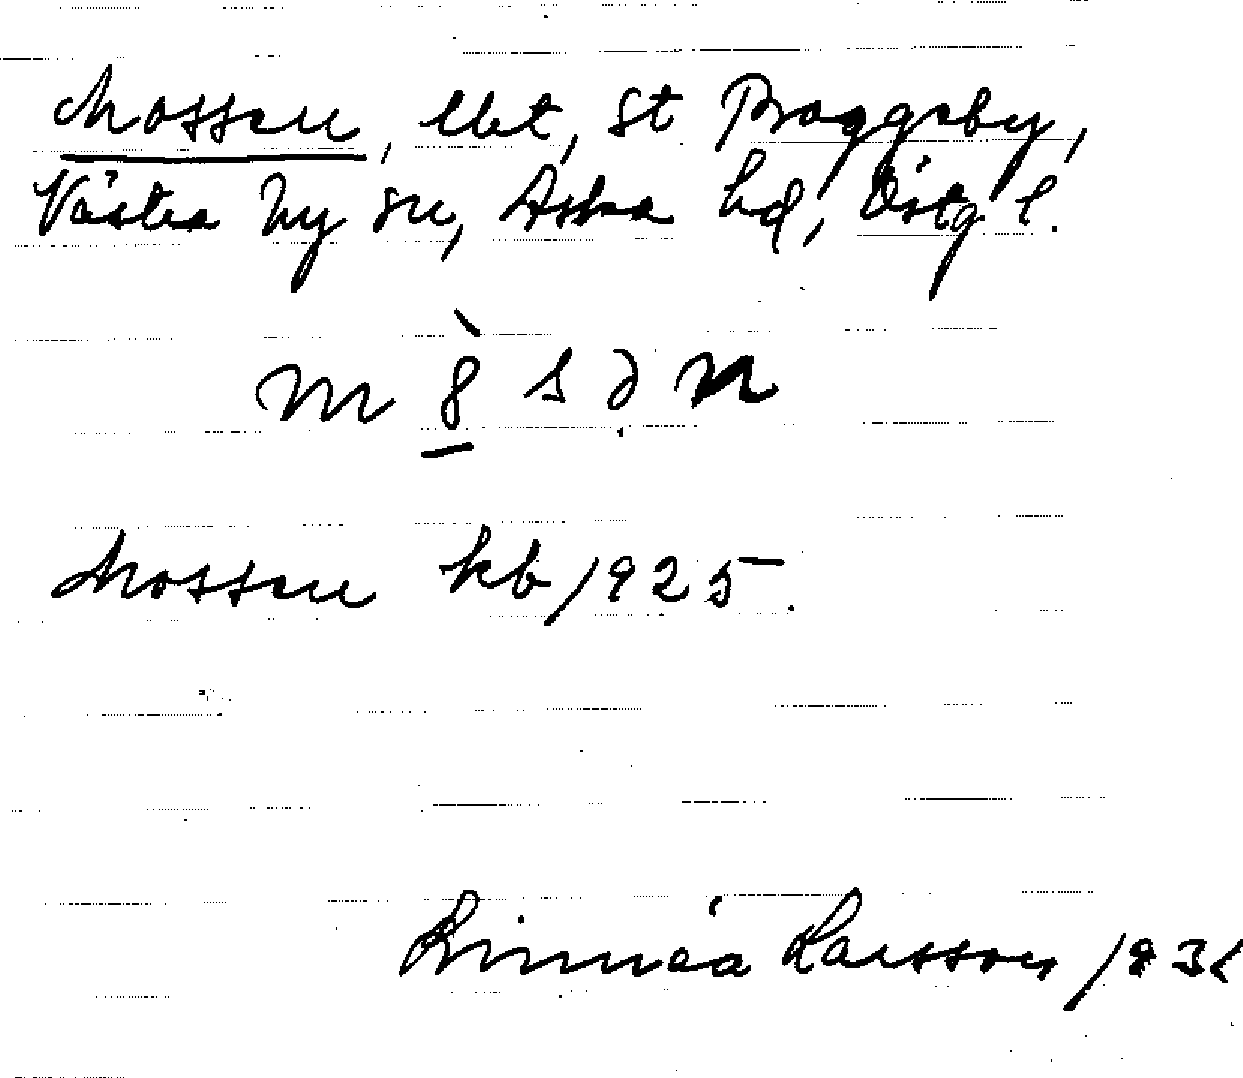 Mossen, lht, St Broggeby,
Västra Ny sn, Aska hd, Östg l.
m 8̀ s ə n
Mossen kb 1925.
Linnéa Larsson 193